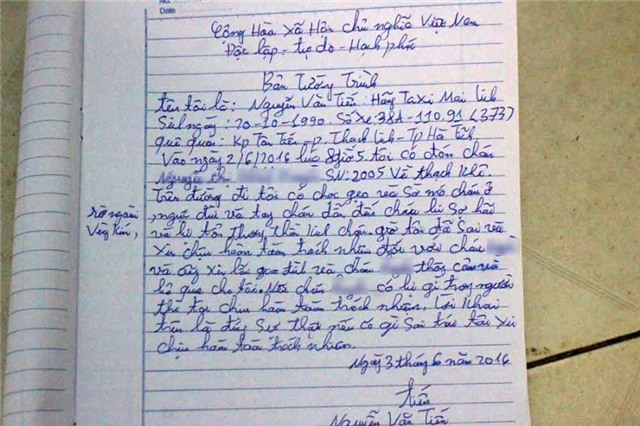 No.
Date
Cộng Hòa Xã Hội chủ nghĩa Việt Nam
Độc lập - tự do - Hạnh phúc
Bản Tường Trình
tên tôi là: Nguyễn Văn Tiến: Hãng Taxi Mai Linh
Sinh ngày: 20-10-1990. Số xe: 38A-110.91 (373)
quê quán: Kp Tân Tiến - p. Thạch Linh - Tp Hà Tĩnh
Vào ngày 2/6/2016 lúc giờ 5. tôi có đón cháu
Nguyễn th. SN: 2005 Về thạch Khê.
Trên đường đi tôi có chọc gẹo và Sờ mó cháu ở
ngực đùi và tay chân dẫn đến cháu bị Sợ hãi
rờ ngoài
Vùng kín,
và bị tổn thương thần kinh giờ tôi đã Sai và
xin chịu hoàn toàn trách nhiệm đối với cháu
và xin lỗi gia đình và cháu thông cảm và
bỏ qua cho tôi. Nếu cháu có bị gì trong người
thì tôi chịu hoàn toàn trách nhiệm, Lời khai
trên là đúng Sự thật nếu có gì Sai trái tôi xin
chịu hoàn toàn trách nhiệm.
Ngày 3 tháng 6 năm 2016
tiến
Nguyễn Văn Tiến